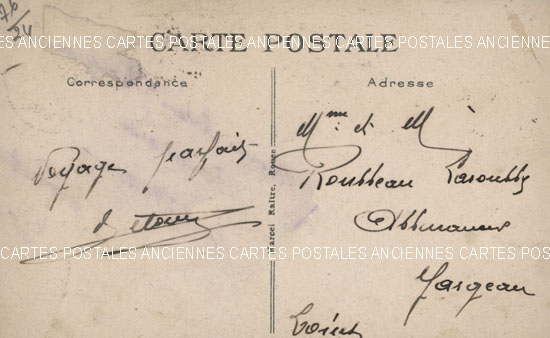 76/24
CARTE POSTALE
ANCIENNES CARTES POSTALES ANCIENNES CARTES POSTALES ANCIENNES CARTES POSTALES
Correspondance
Voyage parfait
Adresse
Mme et M
Rousseau
Jargeau
Loiret
Marcel Raître, Rouen
CARTES POSTALES ANCIENNES CARTES POSTALES ANCIENNES CARTES POSTALES ANCIENNES